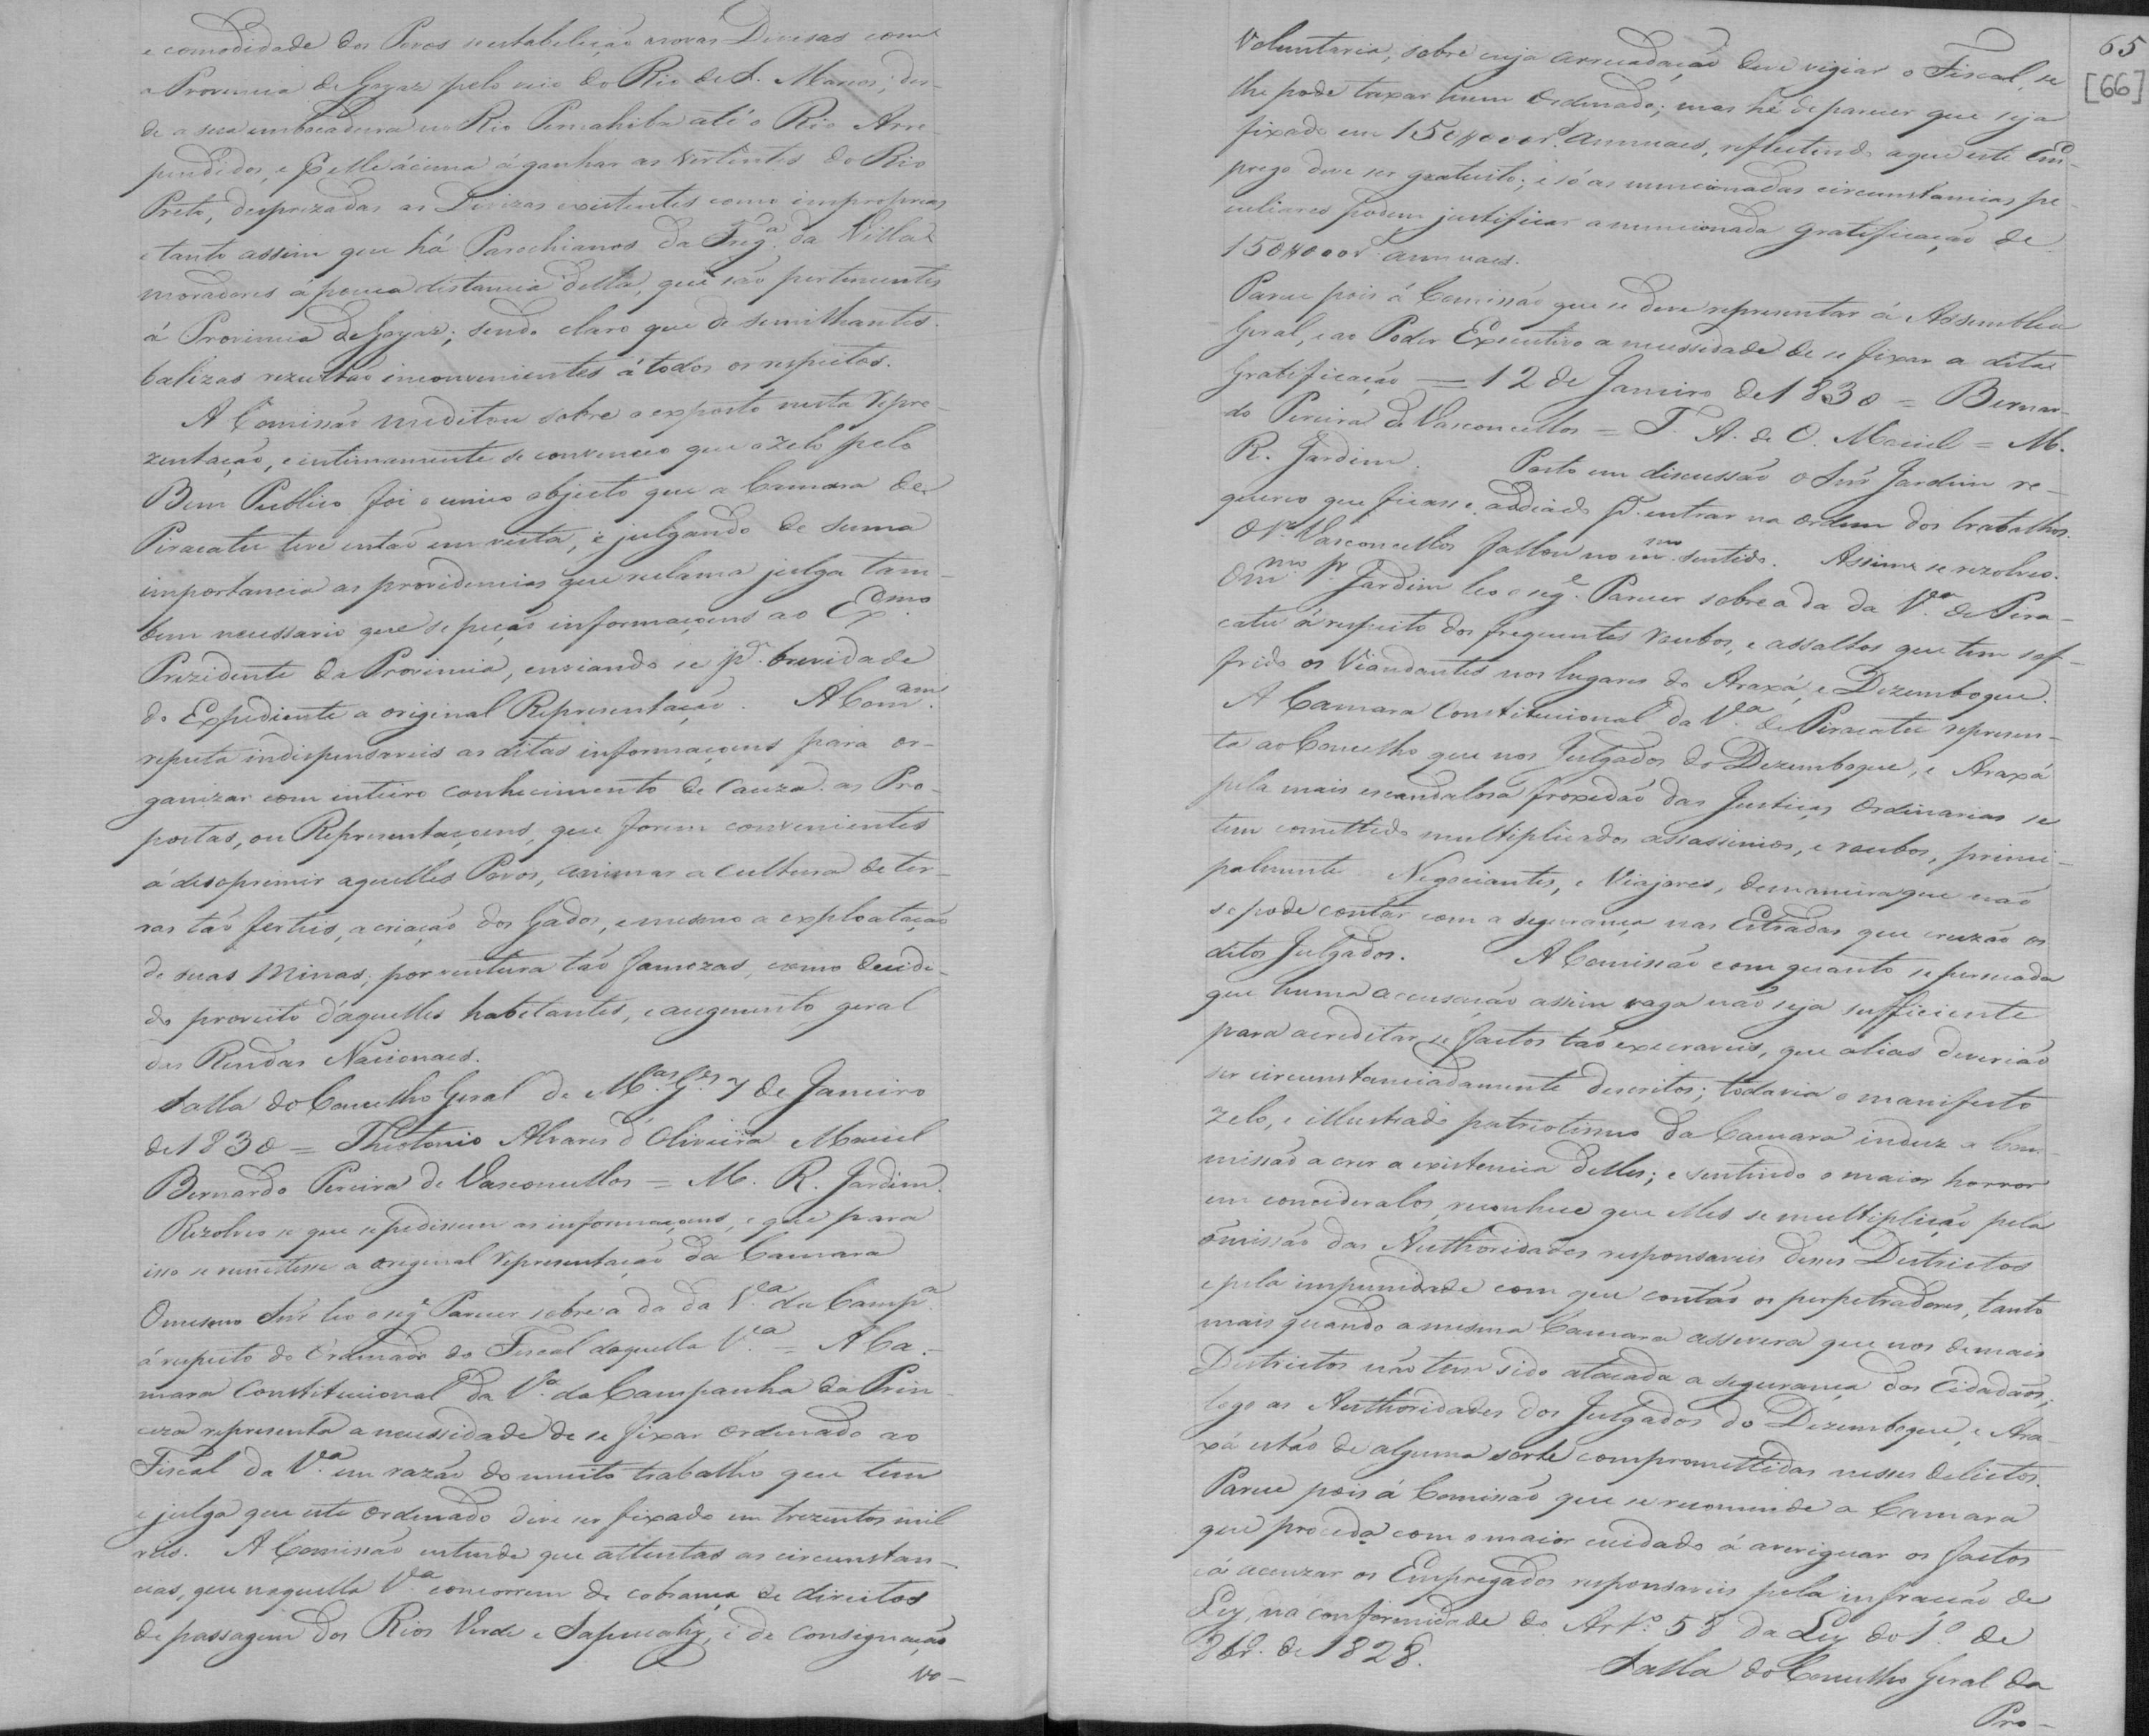 e comodidade dos Povos se estabeleção novas Divisas com
a Provincia de Goyaz pelo veio do Rio de S. Marcos; des-
de a sua embocadura no Rio Parnahiba até o Rio Arre-
pendidos, e p elle ácima á ganhar as vertentes do Rio
Preto, desprezadas as Divizas existentes como improprias
e tanto assim que há Parochianos da Freg.ª da Villa
moradores á pouca distancia della, que são pertencentes
á Provincia de Goyaz; sendo claro que de semilhantes
balizas rezultão inconvenientes á todos os respeitos.
A Comissão meditou sobre o exposto nesta repre-
zentação, e intimamente se convenceo que o zelo pelo
Bem Publico foi o unico objecto que a Camara de
Piracatu teve então em vista, e julgando de suma
importancia as providencias que reclama julga tam-
bem necessario que se peção informaçoens ao Ex.mo
Prezidente da Provincia, enviando se p.ª brevidade
do Expediente a original Representação. A Com.am
reputa indispensaveis as ditas informaçoens para or-
ganizar com inteiro conhecimento de cauza as Pro-
postas, ou Representaçoens, que forem convenientes
á desoprimir aquelles Povos, animar a cultura de ter-
ras tão ferteis, a criação dos Gados, e mesmo a exploatação
de suas Minas, por ventura tão famozas, como decidi-
do proveito d'aquelles habitantes, e augmento geral
das Rendas Nacionaes.
Salla do Concelho Geral de M.as G.es 7 de Janeiro
de 1830 = Theotonio Alvares d' Oliveira Maciel
Bernardo Pereira de Vasconcellos = M. R. Jardim.
Rezolveo se que se pedissem as informaçoens, e que para
isso se remettesse a original representação da Camara
O mesmo Snr leo o seg.e Parecer sobre a da da V.ª da Camp.ª
á respeito do Ordenado do Fiscal daquella V.ª = A Ca-
mara Constitucional da V.ª da Campanha da Prin-
ceza representa a necessidade de se fixar ordenado ao
Fiscal da V.ª em razão do muito trabalho que tem
e julga que este ordenado deve ser fixado em trezentos mil
reis. A Comissão entende que attentas as circunstan-
cias, que naquella V.ª concorrem de cobrança de direitos
de passagem dos Rios Verde e Sapucahÿ, e de consignação
vo-
65
[66]
Voluntaria; sobre cuja arrecadação deve vigiar o Fiscal, se
lhe pode taxar hum Ordenado; mas hé de parecer que seja
fixado em 150$000r.s annuaes, reflectindo aque este Em-
prego deve ser gratuito; e só as mencionadas circumstancias pe-
culiares podem justificar a mencionada gratificação de
150$000r.s annuaes.
Parece pois á Comissão que se deve representar á Assemblea
Geral, e ao Poder Executivo a necessidade de se fixar a dita
Gratificação = 12 de Janeiro de 1830 = Bernar-
do Pereira de Vasconcellos = T. A. de O. Maciel = M.
R. Jardim. Posto em discussão o Snr Jardim re-
quereo que ficasse addiado p.ª entrar na ordem dos trabalhos.
O Sr. Vasconcellos fallou no m.mo sentido. Assim se rezolveo.
O m.mo Sr. Jardim leo o seg.e Parecer sobre a da da V.ª de Pira-
catu á respeito dos frequentes roubos, e assaltos que tem sof-
frido os Viandantes nos lugares do Araxá, e Dezemboque.
A Camara Constitucional da V.ª de Piracatu represen-
ta ao Concelho que nos Julgados do Dezemboque, e Araxá
pela mais escandalosa froxidão das Justiças Ordinarias se
tem comettido multiplicados assassinios, e roubos, princi-
palmente Negociantes, e Viajores, demaneira que não
se pode contar com a segurança nas Estradas que cruzão os
ditos Julgados. A Comissão com quanto se persuada
que huma accusação assim vaga não seja sufficiente
para acreditar se factos tão execraveis, que alias deverião
ser circumstanciadamente descritos; todavia o manifesto
zelo, e illustrado patriotismo da Camara induz a Com-
missão a crer a existencia delles; e sentindo o maior horror
em concideralos reconhece que elles se multiplicão pela
omissão das Authoridades responsaveis desses Destrictos
e pela impunidade com que contão os perpetradores, tanto
mais quando a mesma Camara assevera que nos demais
Destrictos não tem sido atacada a segurança dos Cidadãos,
logo as Authoridades dos Julgados do Dezemboque, e Ara-
xá estão de alguma sorte compromettidas nesses delictos.
Parece pois á Comissão que se recomende a Camara
que proceda com o maior cuidado á averiguar os factos
e á acuzar os Empregados responsaveis pela infração de
Ley, na conformidade do Art.º 58 da Ley do 1.º de
8br.º de 1828. Salla do Concelho Geral da
Pro-